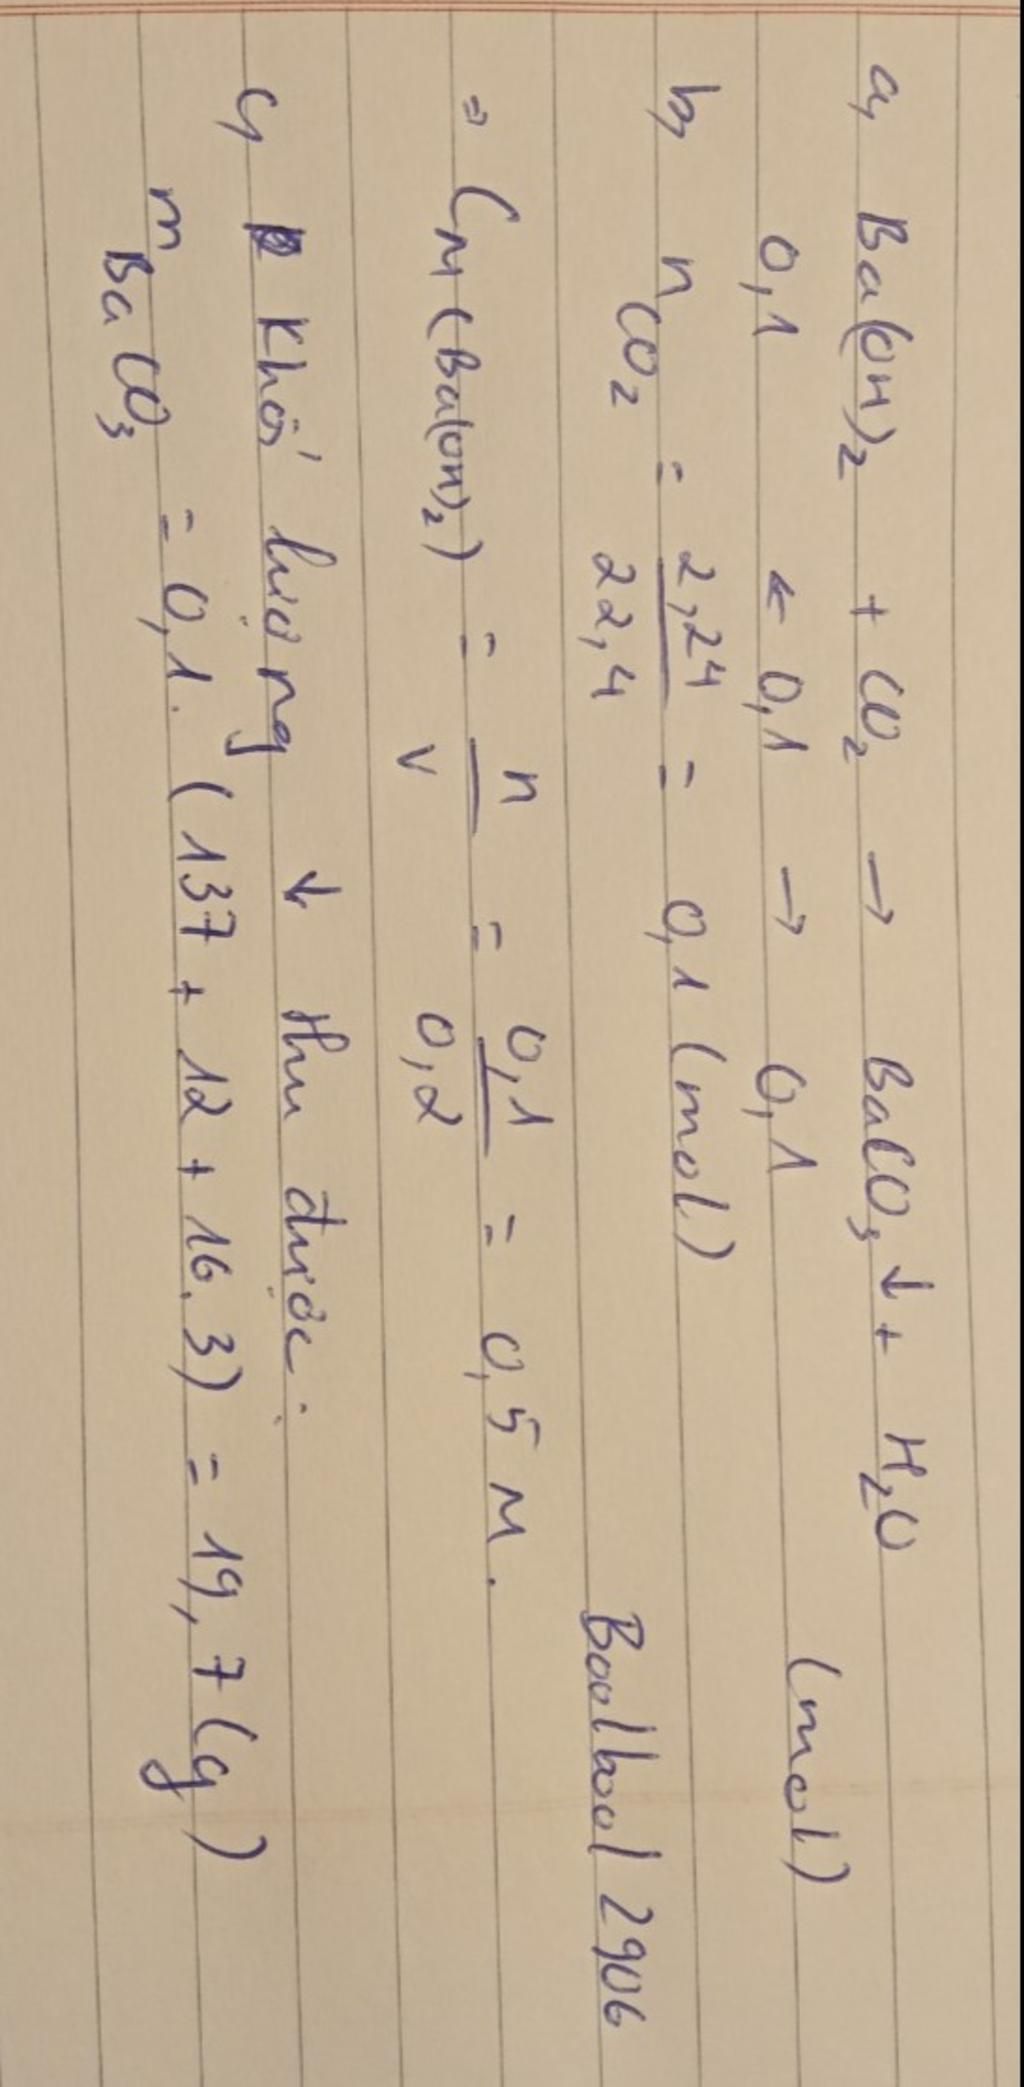 a, Ba(OH)₂ + CO₂ → BaCO₃↓ + H₂O
0,1 ← 0,1 → 0,1 (mol)
b, nCO₂ = 2,24/22,4 = 0,1 (mol)
Boolbool 2906
⇒ CM(Ba(OH)₂) = n/V = 0,1/0,2 = 0,5 M.
c, Khối lượng ↓ thu được:
mBaCO₃ = 0,1. (137 + 12 + 16.3) = 19,7 (g)